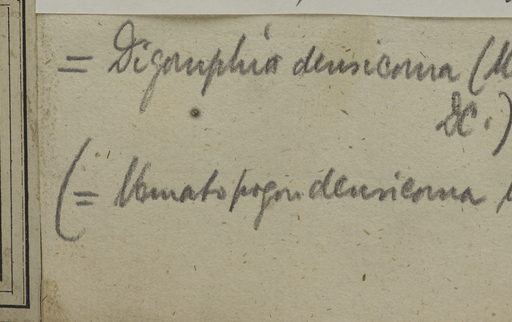 = Digomphia densicoma (M
DC.)
(= Nematopogon densicoma